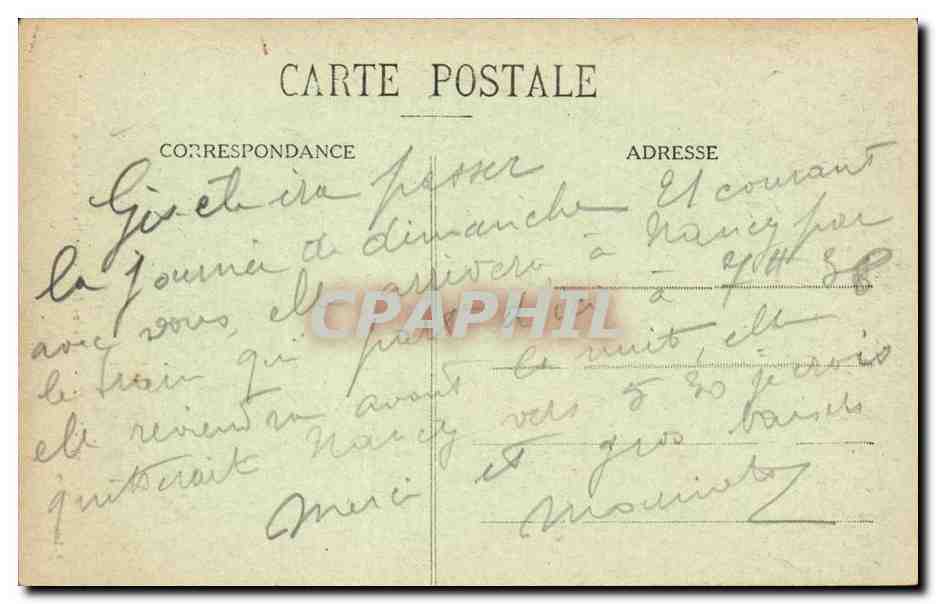 CARTE POSTALE
CORRESPONDANCE
ADRESSE
ira passer
la journée de dimanche Et courant
avec vous, elle arrivera à Nancy par
le train qui part d'ici à 7H 38
elle reviendra avant la nuit, elle
quitterait Nancy vers 5 30 je crois
Merci et gros baisers
CPAPHIL